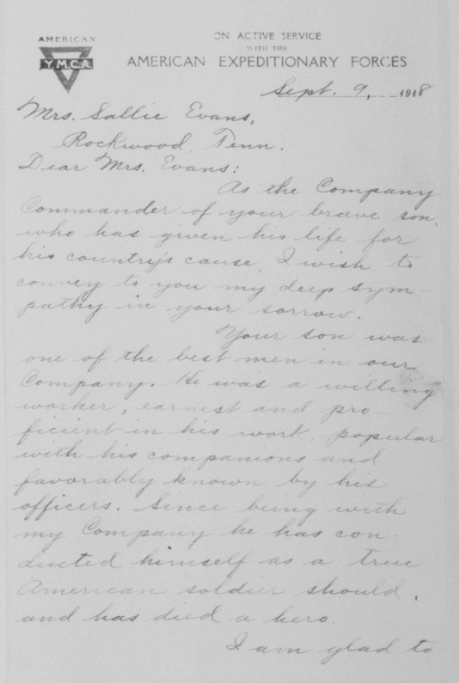 AMERICAN
Y.M.C.A.
ON ACTIVE SERVICE
WITH THE
AMERICAN EXPEDITIONARY FORCES
Sept. 9, 1918
Mrs. Sallie Evans,
Rockwood, Tenn.
Dear Mrs. Evans:
As the Company
Commander of your brave son,
who has given his life for
his country's cause, I wish to
convey to you my deep sym-
pathy in your sorrow.
Your son was
one of the best men in our
Company. He was a willing
worker, earnest and pro-
ficient in his work, popular
with his companions and
favorably known by his
officers. Since being with
my Company he has con-
ducted himself as a true
American soldier should,
and has died a hero.
I am glad to